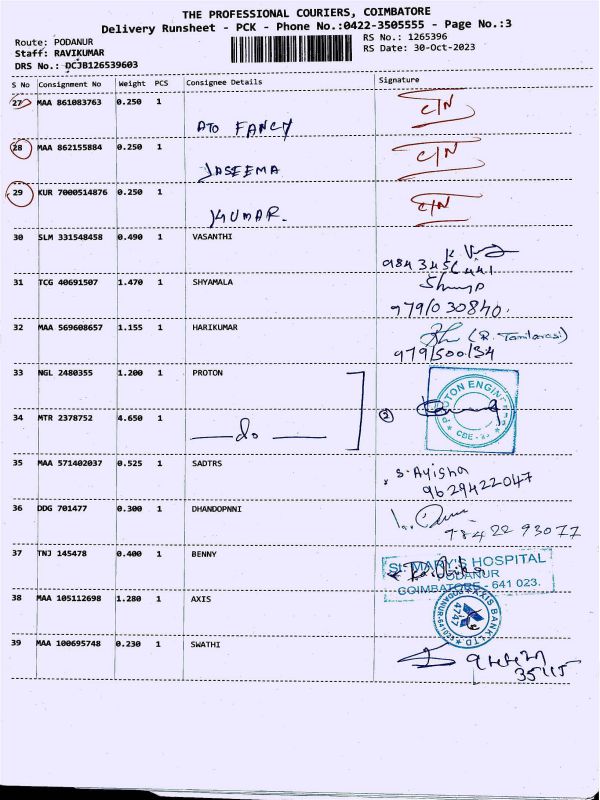 THE PROFESSIONAL COURIERS, COIMBATORE
Delivery Runsheet - PCK - Phone No.:0422-3505555 - Page No.:3
Route: PODANUR
RS No.: 1265396
Staff: RAVIKUMAR
RS Date: 30-Oct-2023
DRS No.: DCJB126539603
S No Consignment No Weight PCS Consignee Details Signature
27 MAA 861083763 0.250 1 C/N
ATO FANCY
28 MAA 862155884 0.250 1 C/N
JASEEMA
29 KUR 7000514876 0.250 1 C/N
KUMAR.
30 SLM 331548458 0.490 1 VASANTHI
9843456441
31 TCG 40691507 1.470 1 SHYAMALA
9791030840.
32 MAA 569608657 1.155 1 HARIKUMAR
(R. Tamilarasi)
9791500134
33 NGL 2480355 1.200 1 PROTON
34 MTR 2378752 4.650 1 do
2
PROTON ENGINEE
CBE - 23
35 MAA 571402037 0.525 1 SADTRS
S. Ayisha
9629422047
36 DDG 701477 0.300 1 DHANDOPNNI
98422 93077
37 TNJ 145478 0.400 1 BENNY
St. MARY'S HOSPITAL
PODANUR
COIMBATORE - 641 023.
38 MAA 105112698 1.280 1 AXIS
AXIS BANK LTD
PODANUR-641023
4747
39 MAA 100695748 0.230 1 SWATHI
35115